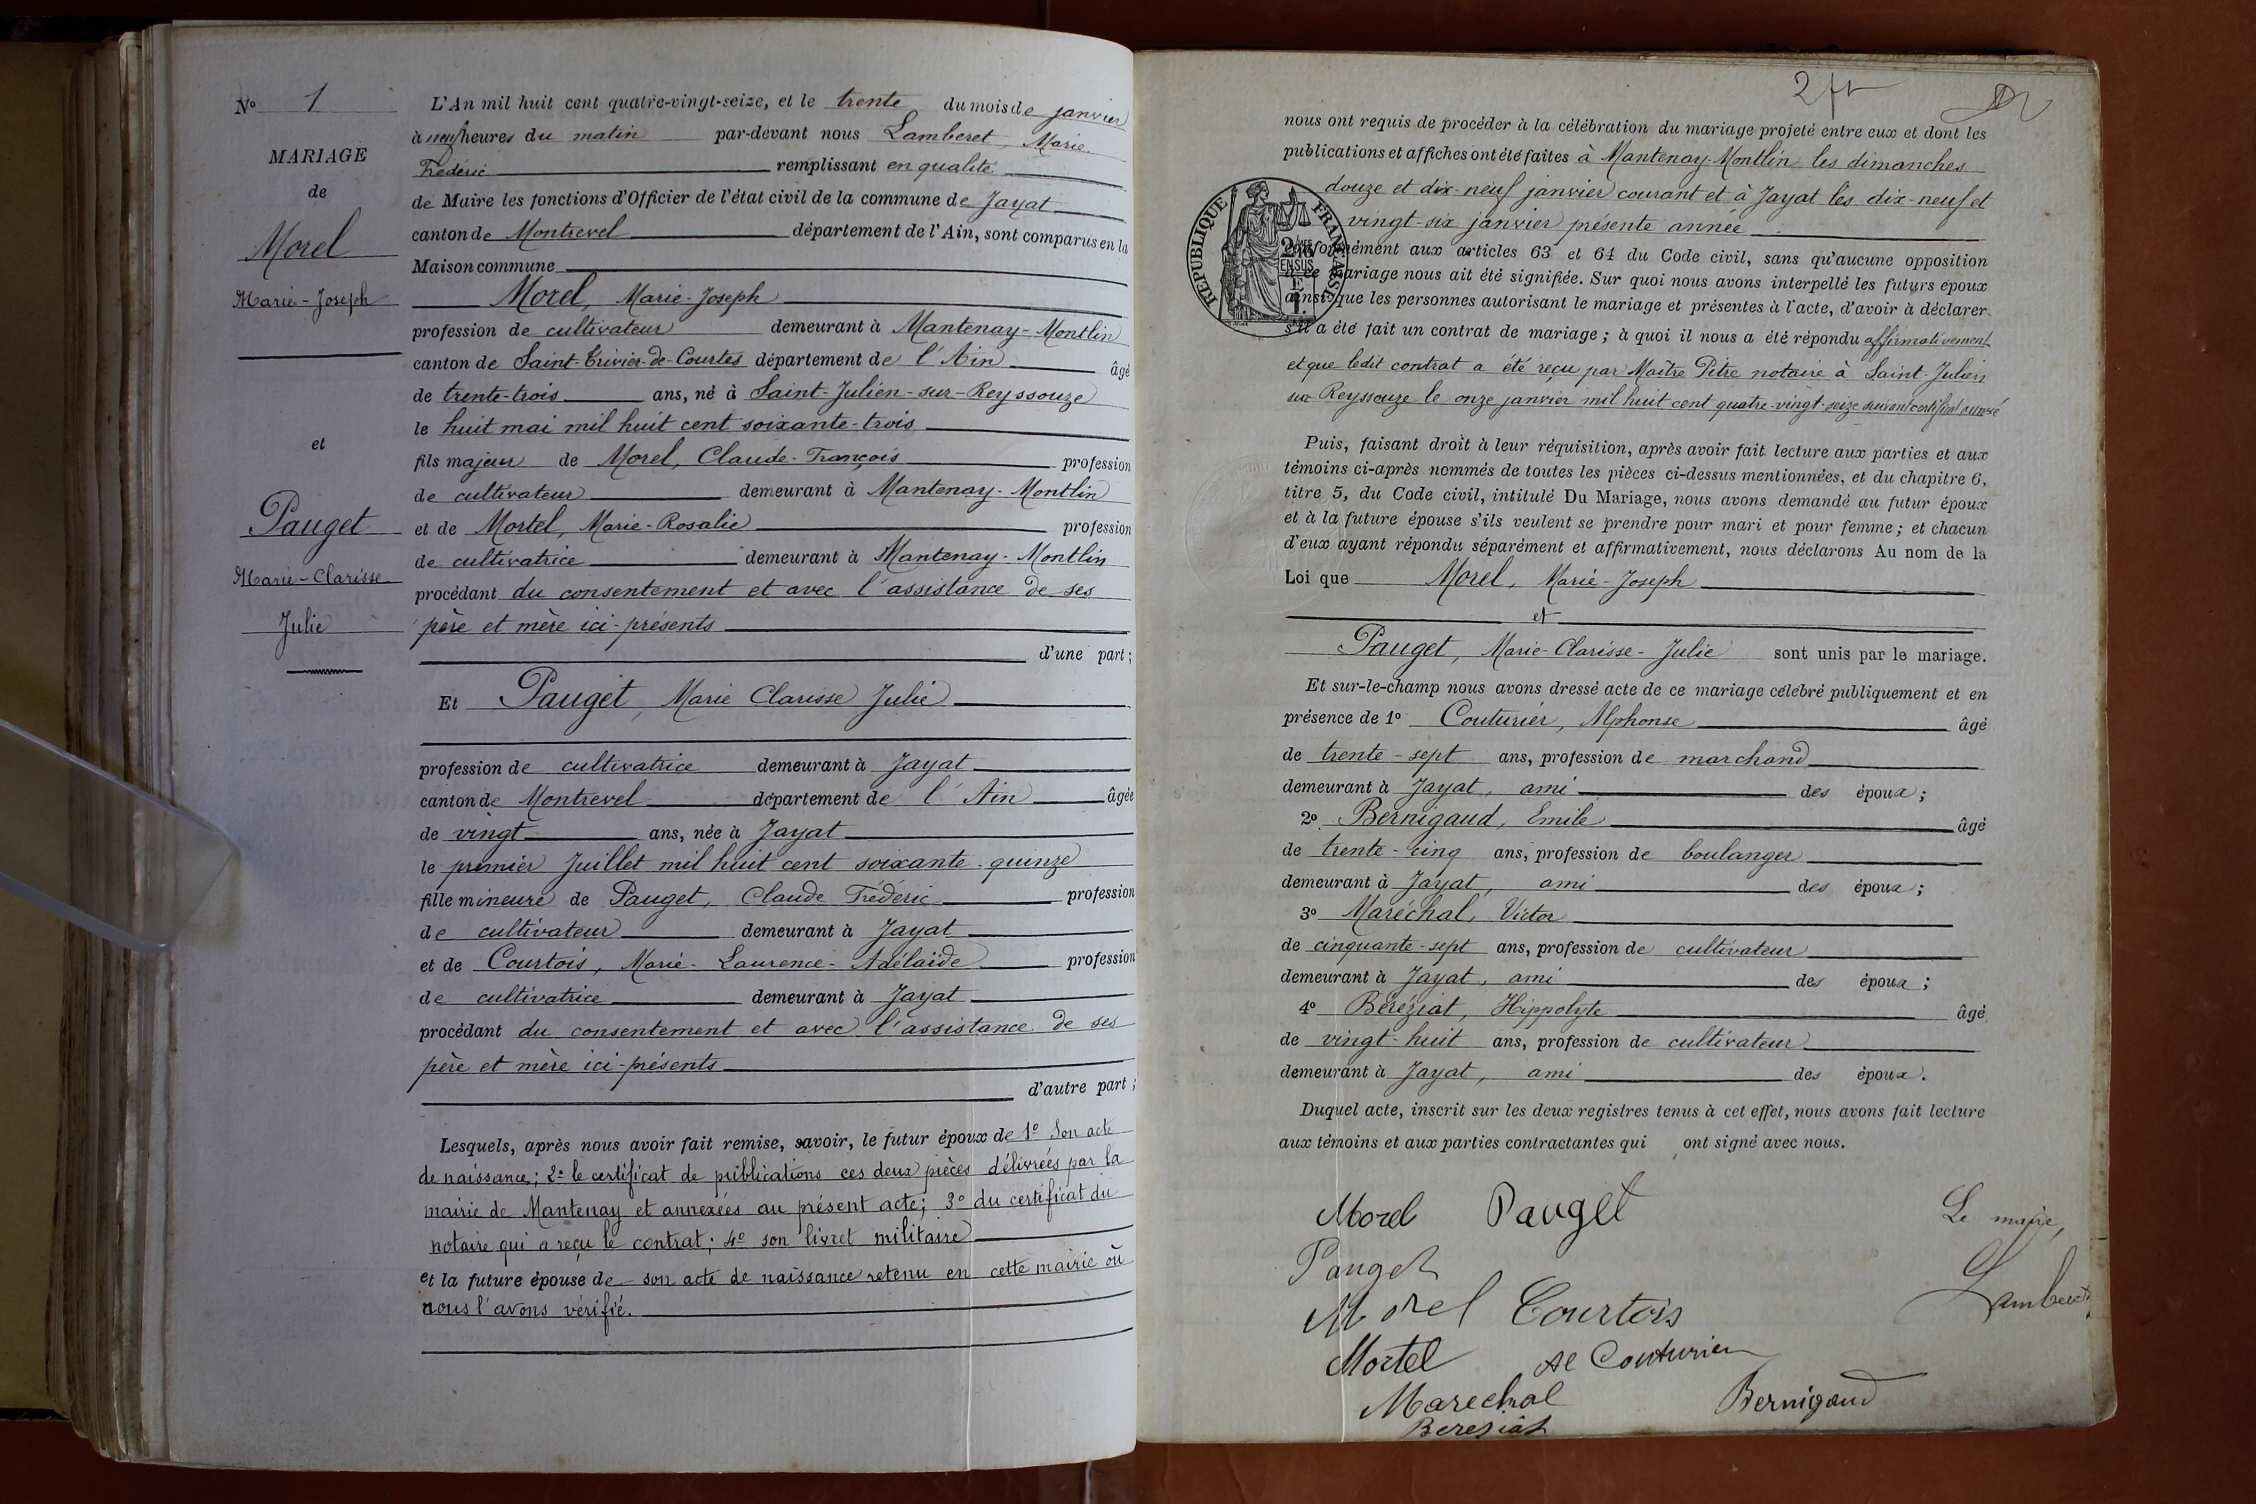 N° 1
MARIAGE
de
Morel
Marie-Joseph
et
Pauget
Marie-Clarisse
Julie
L'An mil huit cent quatre-vingt-seize, et le trente du mois de janvier
à neuf heures du matin par-devant nous Lamberet, Marie
Frédéric remplissant en qualité
de Maire les fonctions d'Officier de l'état civil de la commune de Jayat
canton de Montrevel département de l'Ain, sont comparus en la
Maison commune
Morel, Marie-Joseph
profession de cultivateur demeurant à Mantenay-Montlin
canton de Saint-Trivier-de-Courtes département de l'Ain âgé
de trente-trois ans, né à Saint-Julien-sur-Reyssouze
le huit mai mil huit cent soixante-trois
fils majeur de Morel, Claude-François profession
de cultivateur demeurant à Mantenay-Montlin
et de Mortel, Marie-Rosalie profession
de cultivatrice demeurant à Mantenay-Montlin
procédant du consentement et avec l'assistance de ses
père et mère ici-présents
d'une part;
Et Pauget, Marie Clarisse Julie
profession de cultivatrice demeurant à Jayat
canton de Montrevel département de l'Ain âgée
de vingt ans, née à Jayat
le premier Juillet mil huit cent soixante-quinze
fille mineure de Pauget, Claude Frédéric profession
de cultivateur demeurant à Jayat
et de Courtois, Marie-Laurence-Adélaïde profession
de cultivatrice demeurant à Jayat
procédant du consentement et avec l'assistance de ses
père et mère ici-présents
d'autre part;
Lesquels, après nous avoir fait remise, savoir, le futur époux de 1° Son acte
de naissance; 2° le certificat de publications ces deux pièces délivrées par la
mairie de Mantenay et annexées au présent acte; 3° du certificat du
notaire qui a reçu le contrat; 4° son livret militaire
et la future épouse de son acte de naissance retenu en cette mairie où
nous l'avons vérifié.
nous ont requis de procéder à la célébration du mariage projeté entre eux et dont les
publications et affiches ont été faites à Mantenay-Montlin les dimanches
douze et dix-neuf janvier courant et à Jayat les dix-neuf et
vingt-six janvier présente année
conformément aux articles 63 et 64 du Code civil, sans qu'aucune opposition
à ce mariage nous ait été signifiée. Sur quoi nous avons interpellé les futurs époux
ainsi que les personnes autorisant le mariage et présentes à l'acte, d'avoir à déclarer
s'il a été fait un contrat de mariage; à quoi il nous a été répondu affirmativement
et que ledit contrat a été reçu par Maître Pitre notaire à Saint-Julien
sur Reyssouze le onze janvier mil huit cent quatre-vingt-seize suivant certificat annexé
RÉPUBLIQUE FRANÇAISE
Puis, faisant droit à leur réquisition, après avoir fait lecture aux parties et aux
témoins ci-après nommés de toutes les pièces ci-dessus mentionnées, et du chapitre 6,
titre 5, du Code civil, intitulé Du Mariage, nous avons demandé au futur époux
et à la future épouse s'ils veulent se prendre pour mari et pour femme; et chacun
d'eux ayant répondu séparément et affirmativement, nous déclarons Au nom de la
Loi que Morel, Marie-Joseph
et
Pauget, Marie-Clarisse-Julie sont unis par le mariage.
Et sur-le-champ nous avons dressé acte de ce mariage célébré publiquement et en
présence de 1° Couturier, Alphonse âgé
de trente-sept ans, profession de marchand
demeurant à Jayat, ami des époux;
2° Bernigaud, Emile âgé
de trente-cinq ans, profession de boulanger
demeurant à Jayat, ami des époux;
3° Maréchal, Victor
de cinquante-sept ans, profession de cultivateur
demeurant à Jayat, ami des époux;
4° Béréziat, Hippolyte âgé
de vingt-huit ans, profession de cultivateur
demeurant à Jayat, ami des époux.
Duquel acte, inscrit sur les deux registres tenus à cet effet, nous avons fait lecture
aux témoins et aux parties contractantes qui ont signé avec nous.
Morel Pauget
Le maire,
Pauget
Lamberet
Morel Courtois
Mortel Al Couturier
Marechal Bernigaud
Bereziat